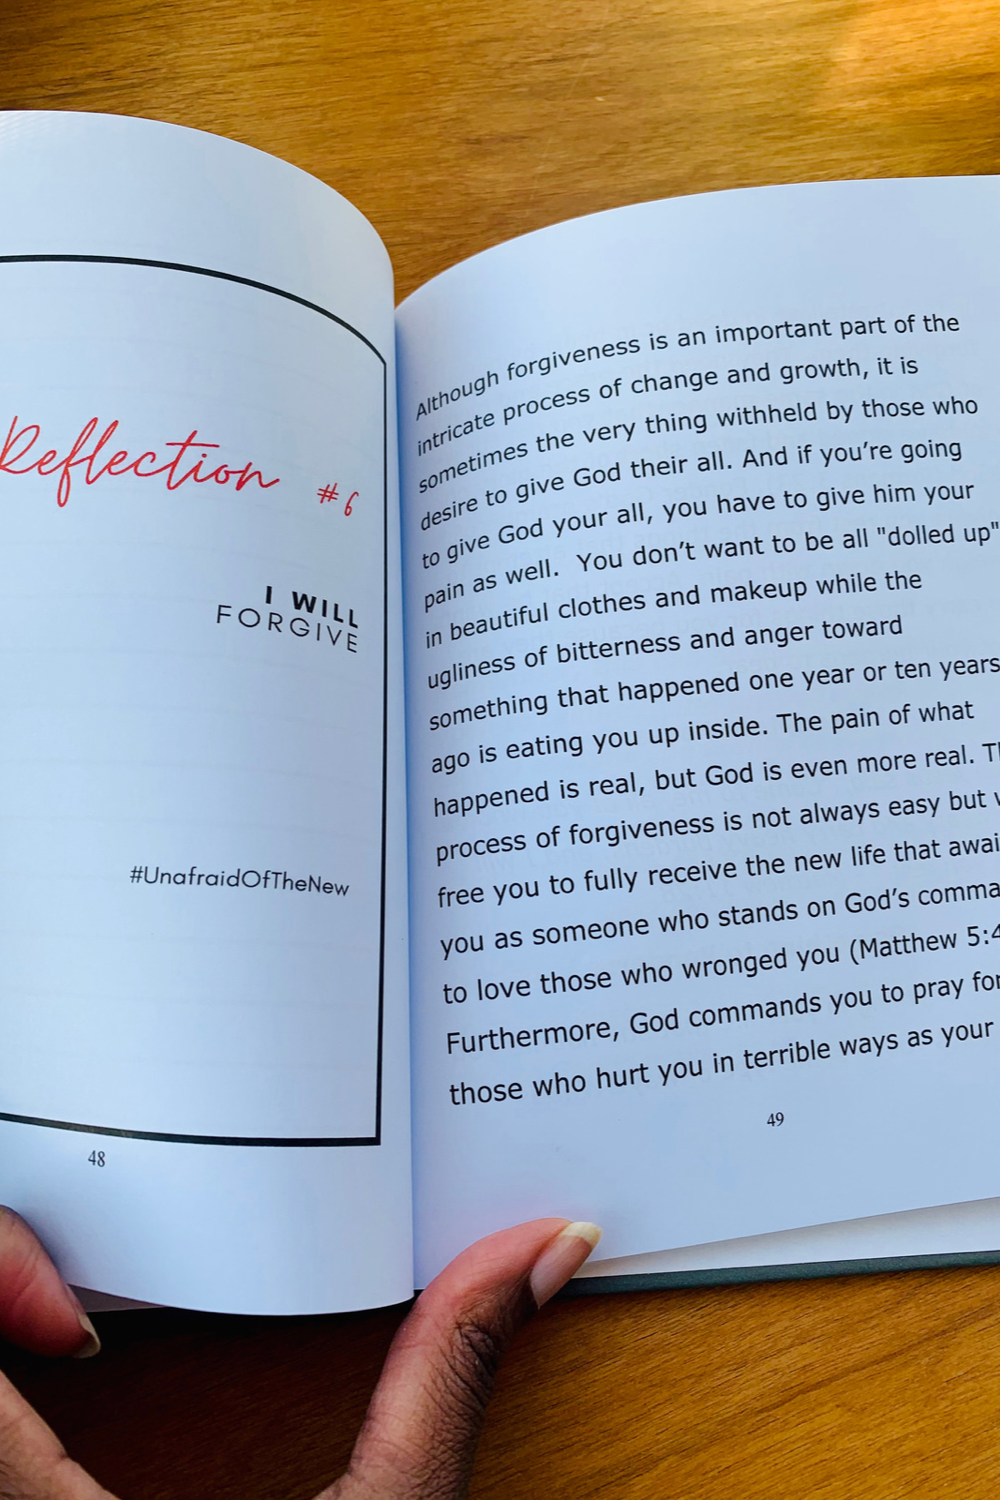 Reflection #6
I WILL
FORGIVE
#UnafraidOfTheNew
48
Although forgiveness is an important part of the
intricate process of change and growth, it is
sometimes the very thing withheld by those who
desire to give God their all. And if you're going
to give God your all, you have to give him your
pain as well.  You don't want to be all "dolled up"
in beautiful clothes and makeup while the
ugliness of bitterness and anger toward
something that happened one year or ten years
ago is eating you up inside. The pain of what
happened is real, but God is even more real.
process of forgiveness is not always easy but
free you to fully receive the new life that
you as someone who stands on God's
to love those who wronged you (Matthew
Furthermore, God commands you to pray for
those who hurt you in terrible ways as your
49